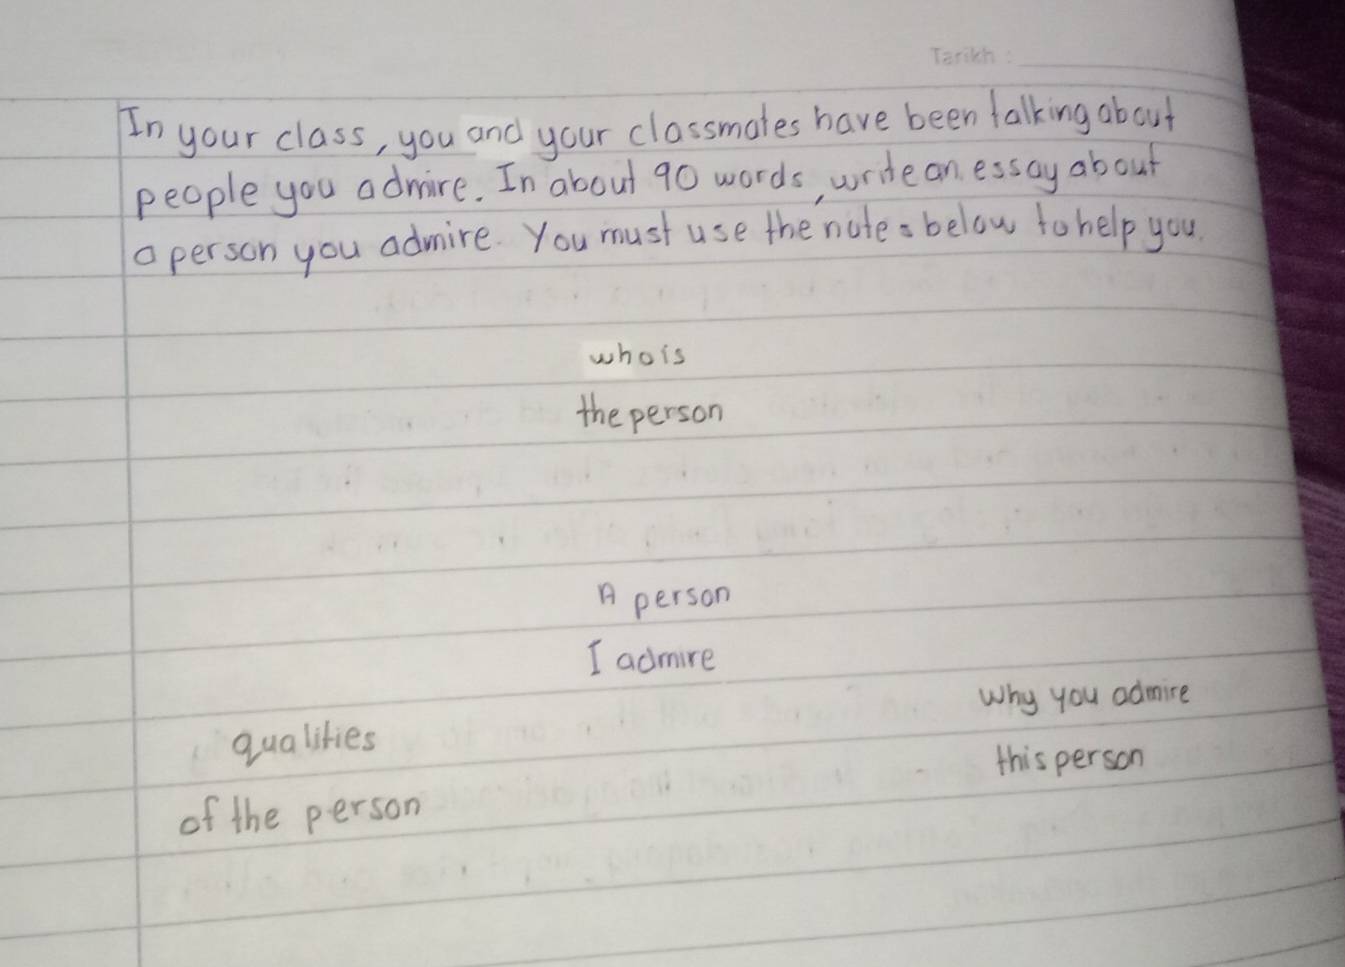 Tarikh :
In your class, you and your classmates have been talking about
people you admire. In about 90 words, write an essay about
a person you admire. You must use the notes below to help you.
who is
the person
A person
I admire
Why you admire
qualities
this person
of the person